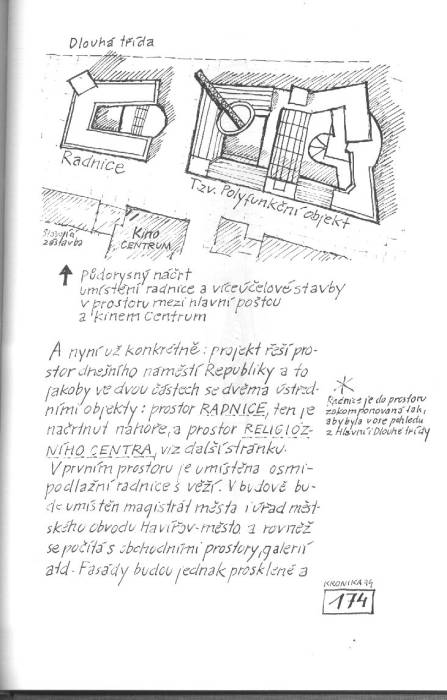 Dlouhá třída
Radnice
Tzv. Polyfunkční objekt
Stávající
zástavba
Kino
CENTRUM
Půdorysný náčrt
umístění radnice a víceúčelové stavby
v prostoru mezi hlavní poštou
a kinem Centrum
A nyní už konkrétně: projekt řeší pro-
stor dnešního náměstí Republiky a to
jakoby ve dvou částech se dvěma ústřed-
ními objekty: prostor RADNICE, ten je
načrtnut nahoře, a prostor RELIGIOZ-
NÍHO CENTRA, viz další stránku.
V prvním prostoru je umístěna osmi-
podlažní radnice s věží. V budově bu-
de umístěn magistrát města i úřad měst-
ského obvodu Havířov-město a rovněž
se počítá s obchodními prostory, galerií
atd. Fasády budou jednak prosklené a
Radnice je do prostoru
zakomponována tak,
aby byla v ose pohledu
z Hlavní Dlouhé třídy
KRONIKA 94
174